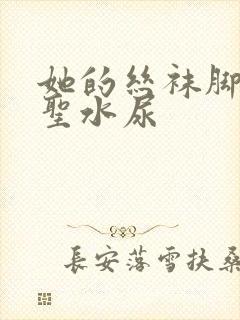 她的絲袜脚
聖水尿
長安落雪扶桑